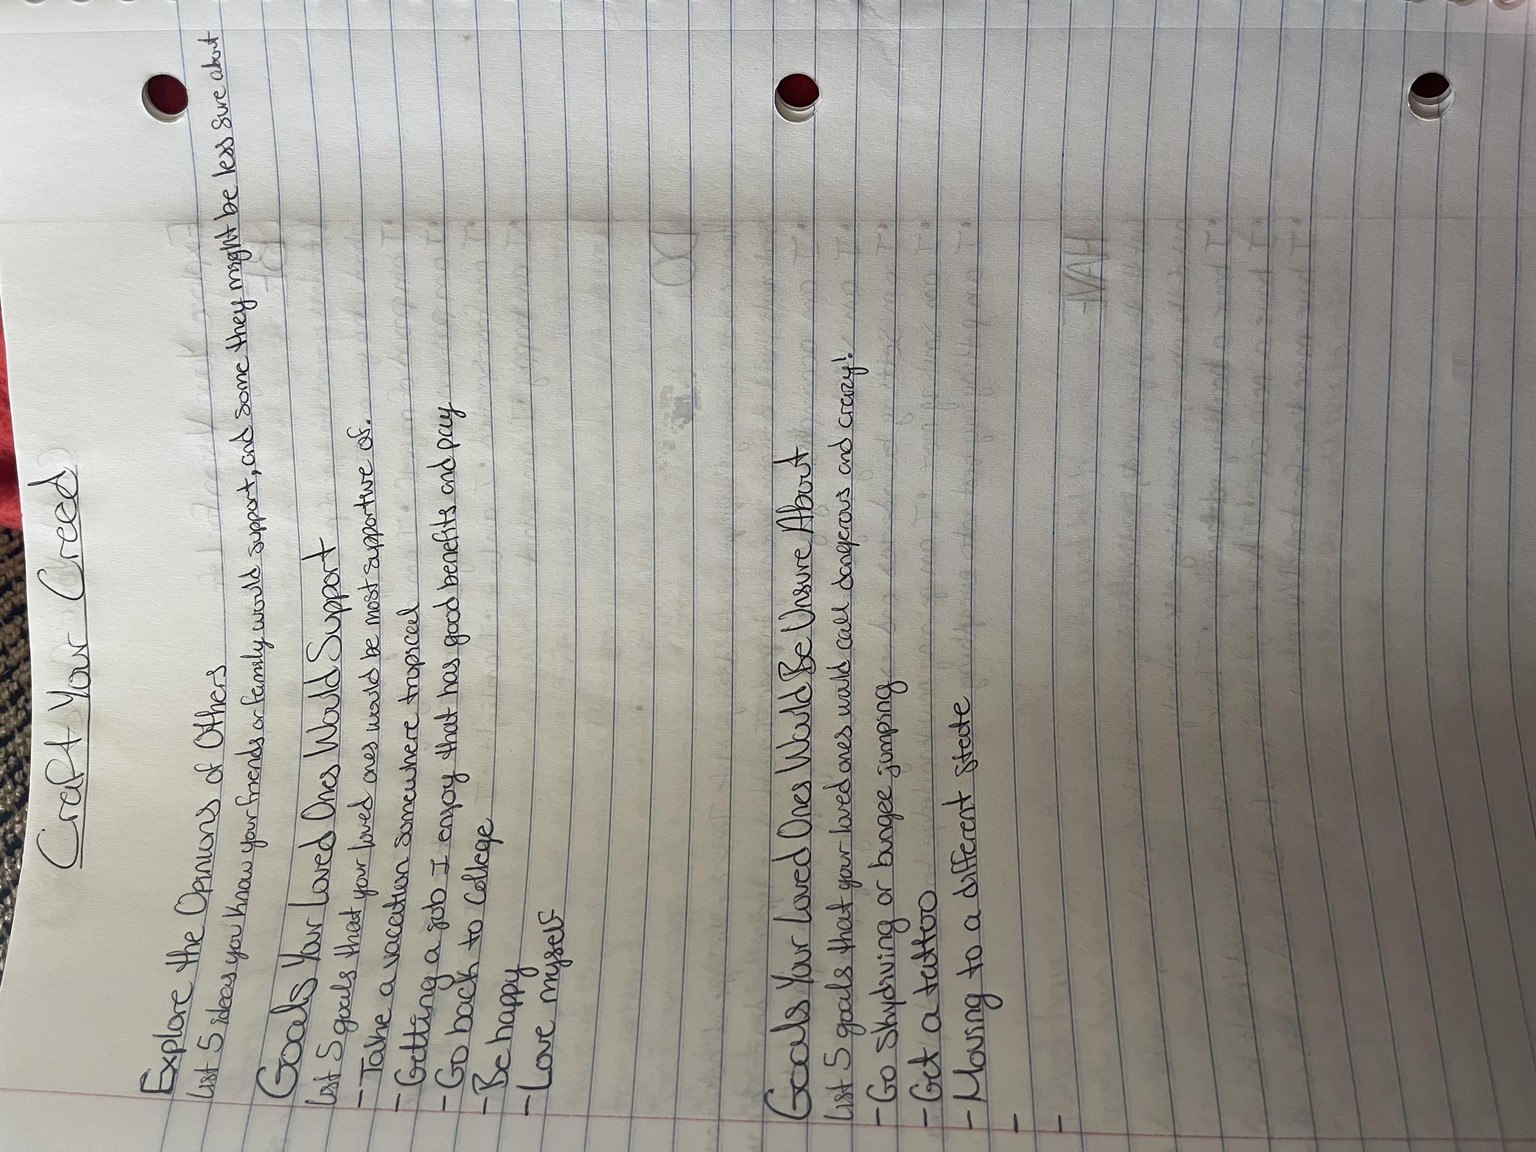 Craft Your Creed
Explore the Opinions of Others
List 5 ideas you know your friends or family would support, and some they might be less sure about
Goals Your Loved Ones Would Support
List 5 goals that your loved ones would be most supportive of.
- Take a vacation somewhere tropical
- Getting a job I enjoy that has good benefits and pay
- Go back to College
- Be happy
- Love myself
Goals Your Loved Ones Would Be Unsure About
List 5 goals that your loved ones would call dangerous and crazy!
- Go Skydiving or bungee jumping
- Get a tattoo
- Moving to a different state
-
-